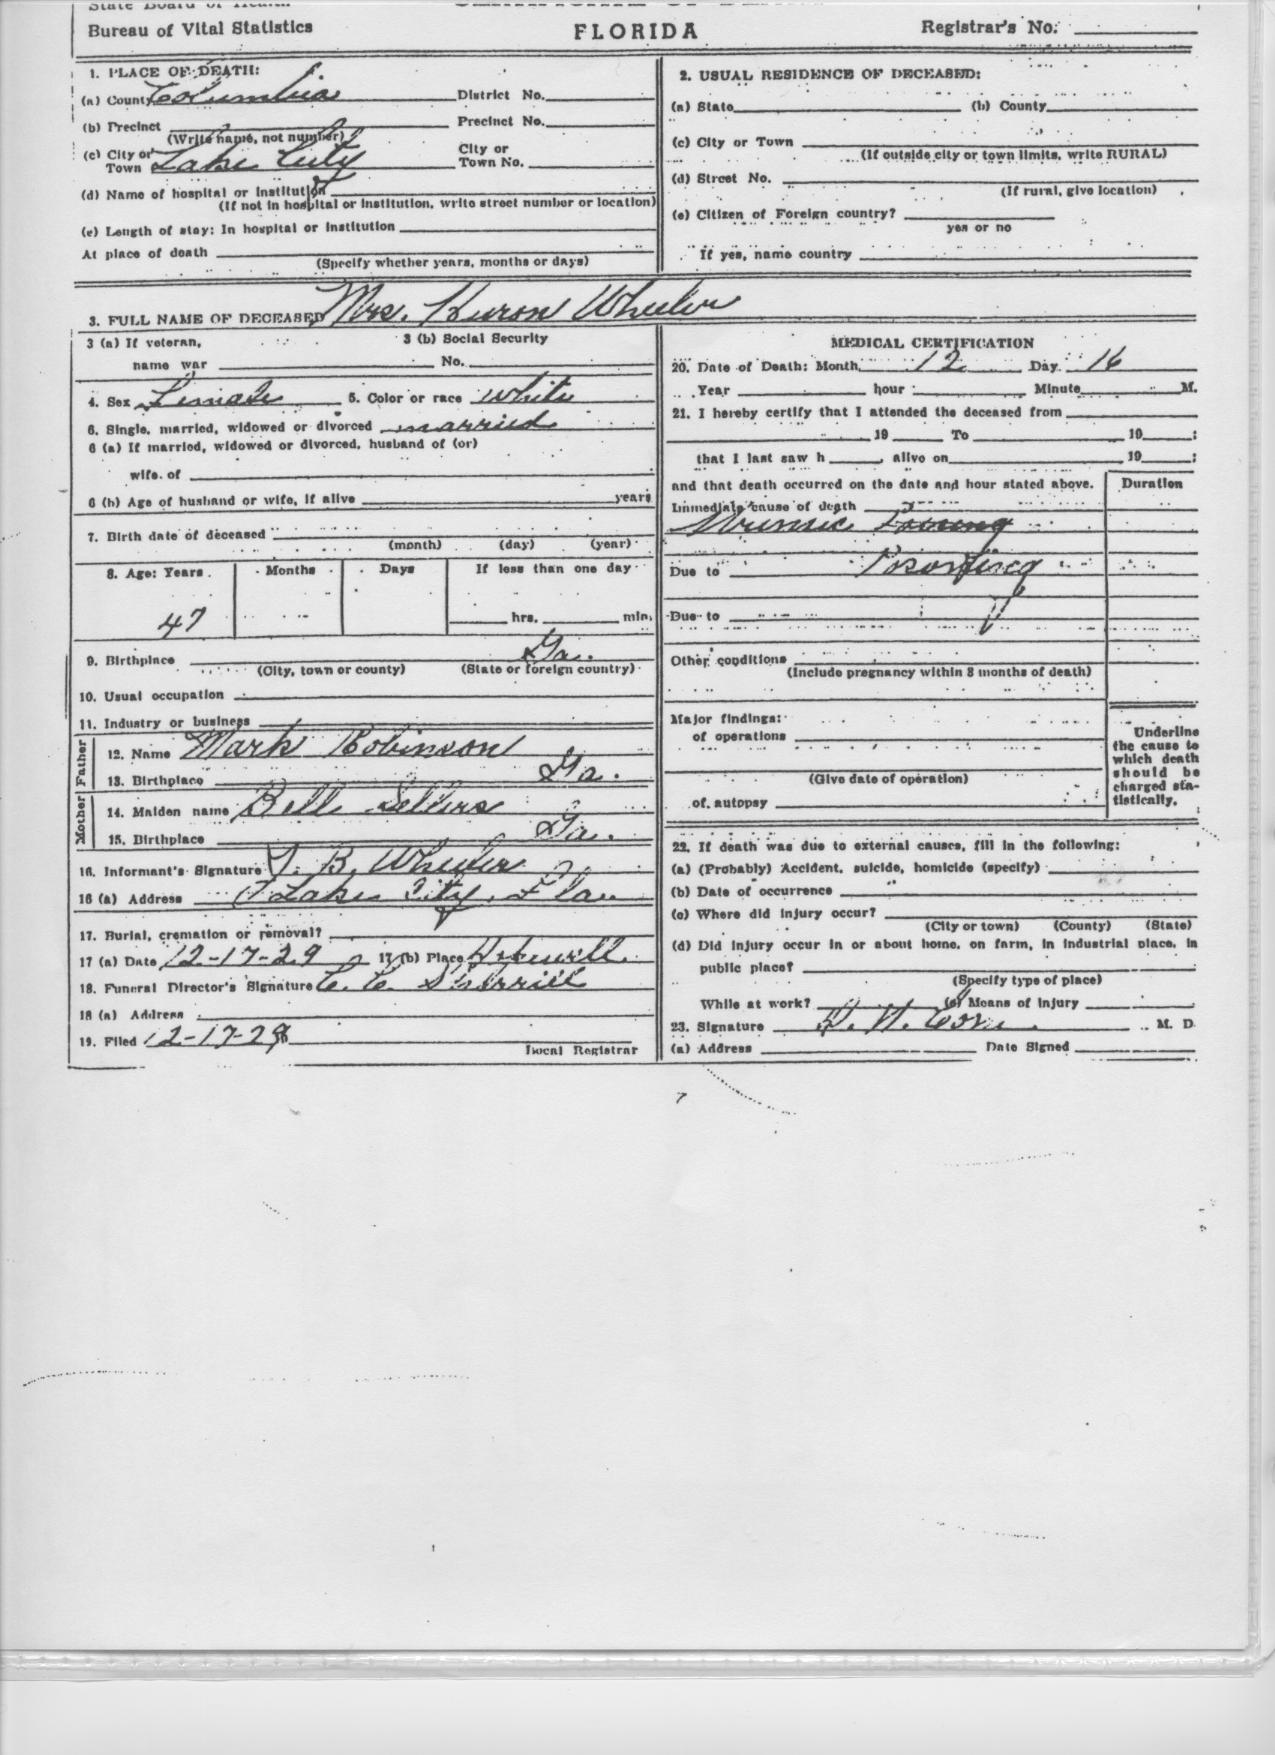 State Board of Health
CERTIFICATE OF DEATH
Bureau of Vital Statistics
FLORIDA
Registrar's No.
1. PLACE OF DEATH:
(a) County Columbia District No.
(b) Precinct Precinct No.
(Write name, not number)
(c) City or Town Lake City City or Town No.
(d) Name of hospital or institution
(If not in hospital or institution, write street number or location)
(e) Length of stay: In hospital or institution
At place of death
(Specify whether years, months or days)
2. USUAL RESIDENCE OF DECEASED:
(a) State (b) County
(c) City or Town
(If outside city or town limits, write RURAL)
(d) Street No.
(If rural, give location)
(e) Citizen of Foreign country?
yes or no
If yes, name country
3. FULL NAME OF DECEASED Mrs. Huron Wheeler
3 (a) If veteran, 3 (b) Social Security
name war No.
4. Sex Female 5. Color or race white
6. Single, married, widowed or divorced married
6 (a) If married, widowed or divorced, husband of (or)
wife of
6 (b) Age of husband or wife, if alive years
7. Birth date of deceased
(month) (day) (year)
8. Age: Years Months Days If less than one day
47 hrs. min.
9. Birthplace Ga.
(City, town or county) (State or foreign country)
10. Usual occupation
11. Industry or business
Father
12. Name Mark Robinson
13. Birthplace Ga.
Mother
14. Maiden name Bell Sellers
15. Birthplace Ga.
16. Informant's Signature T. B. Wheeler
16 (a) Address Lake City, Fla
17. Burial, cremation or removal?
17 (a) Date 12-17-29 17 (b) Place
18. Funeral Director's Signature C. C. Sherrill
18 (a) Address
19. Filed 12-17-29
Local Registrar
MEDICAL CERTIFICATION
20. Date of Death: Month 12 Day 16
Year hour Minute M.
21. I hereby certify that I attended the deceased from
19 To 19 :
that I last saw h , alive on 19 :
and that death occurred on the date and hour stated above. Duration
Immediate cause of death
Due to
Due to
Other conditions
(Include pregnancy within 3 months of death)
Major findings:
of operations
(Give date of operation)
of autopsy
Underline
the cause to
which death
should be
charged sta-
tistically.
22. If death was due to external causes, fill in the following:
(a) (Probably) Accident, suicide, homicide (specify)
(b) Date of occurrence
(c) Where did injury occur?
(City or town) (County) (State)
(d) Did injury occur in or about home, on farm, in industrial place, in
public place?
(Specify type of place)
While at work? (e) Means of injury
23. Signature M. D.
(a) Address Date Signed